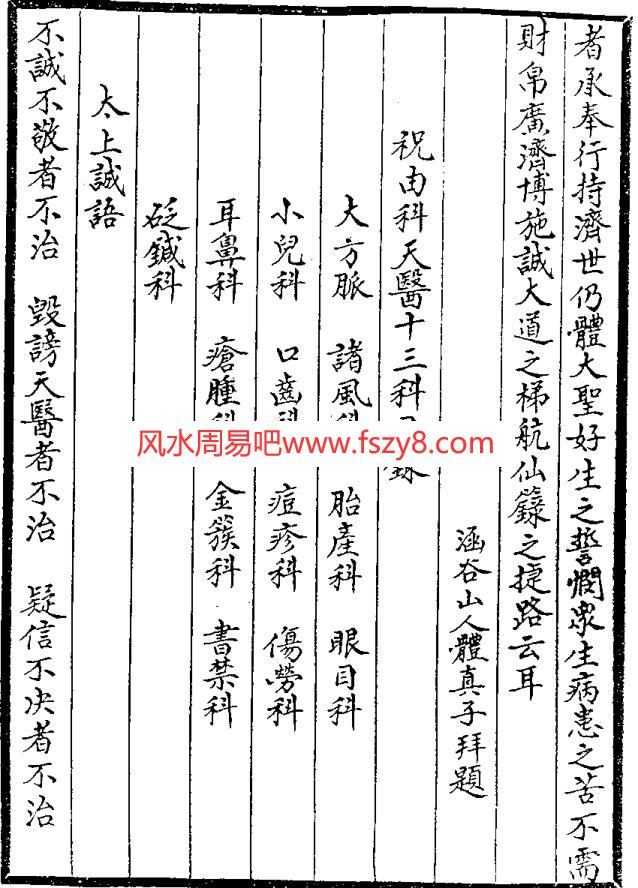 者承奉行持濟世仍體大聖好生之誓憫眾生病患之苦不需
財帛廣濟博施誠大道之梯航仙籙之捷路云耳
涵谷山人體真子拜題
祝由科天醫十三科
大方脈 諸風科 胎產科 眼目科
小兒科 口齒科 痘疹科 傷勞科
耳鼻科 瘡腫科 金簇科 書禁科
砭鍼科
太上誠語
不誠不敬者不治 毀謗天醫者不治 疑信不決者不治
风水周易吧www.fszy8.com